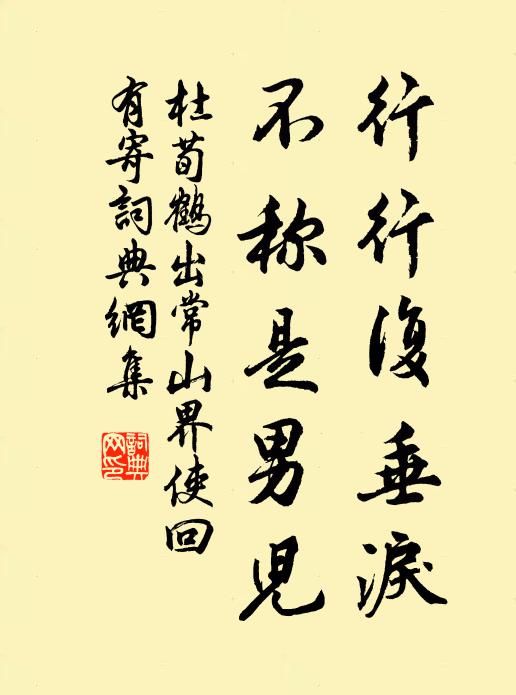 行行復垂淚
不称是男児
杜荀鶴出常山界使回
有寄詞典網集
詞典网印